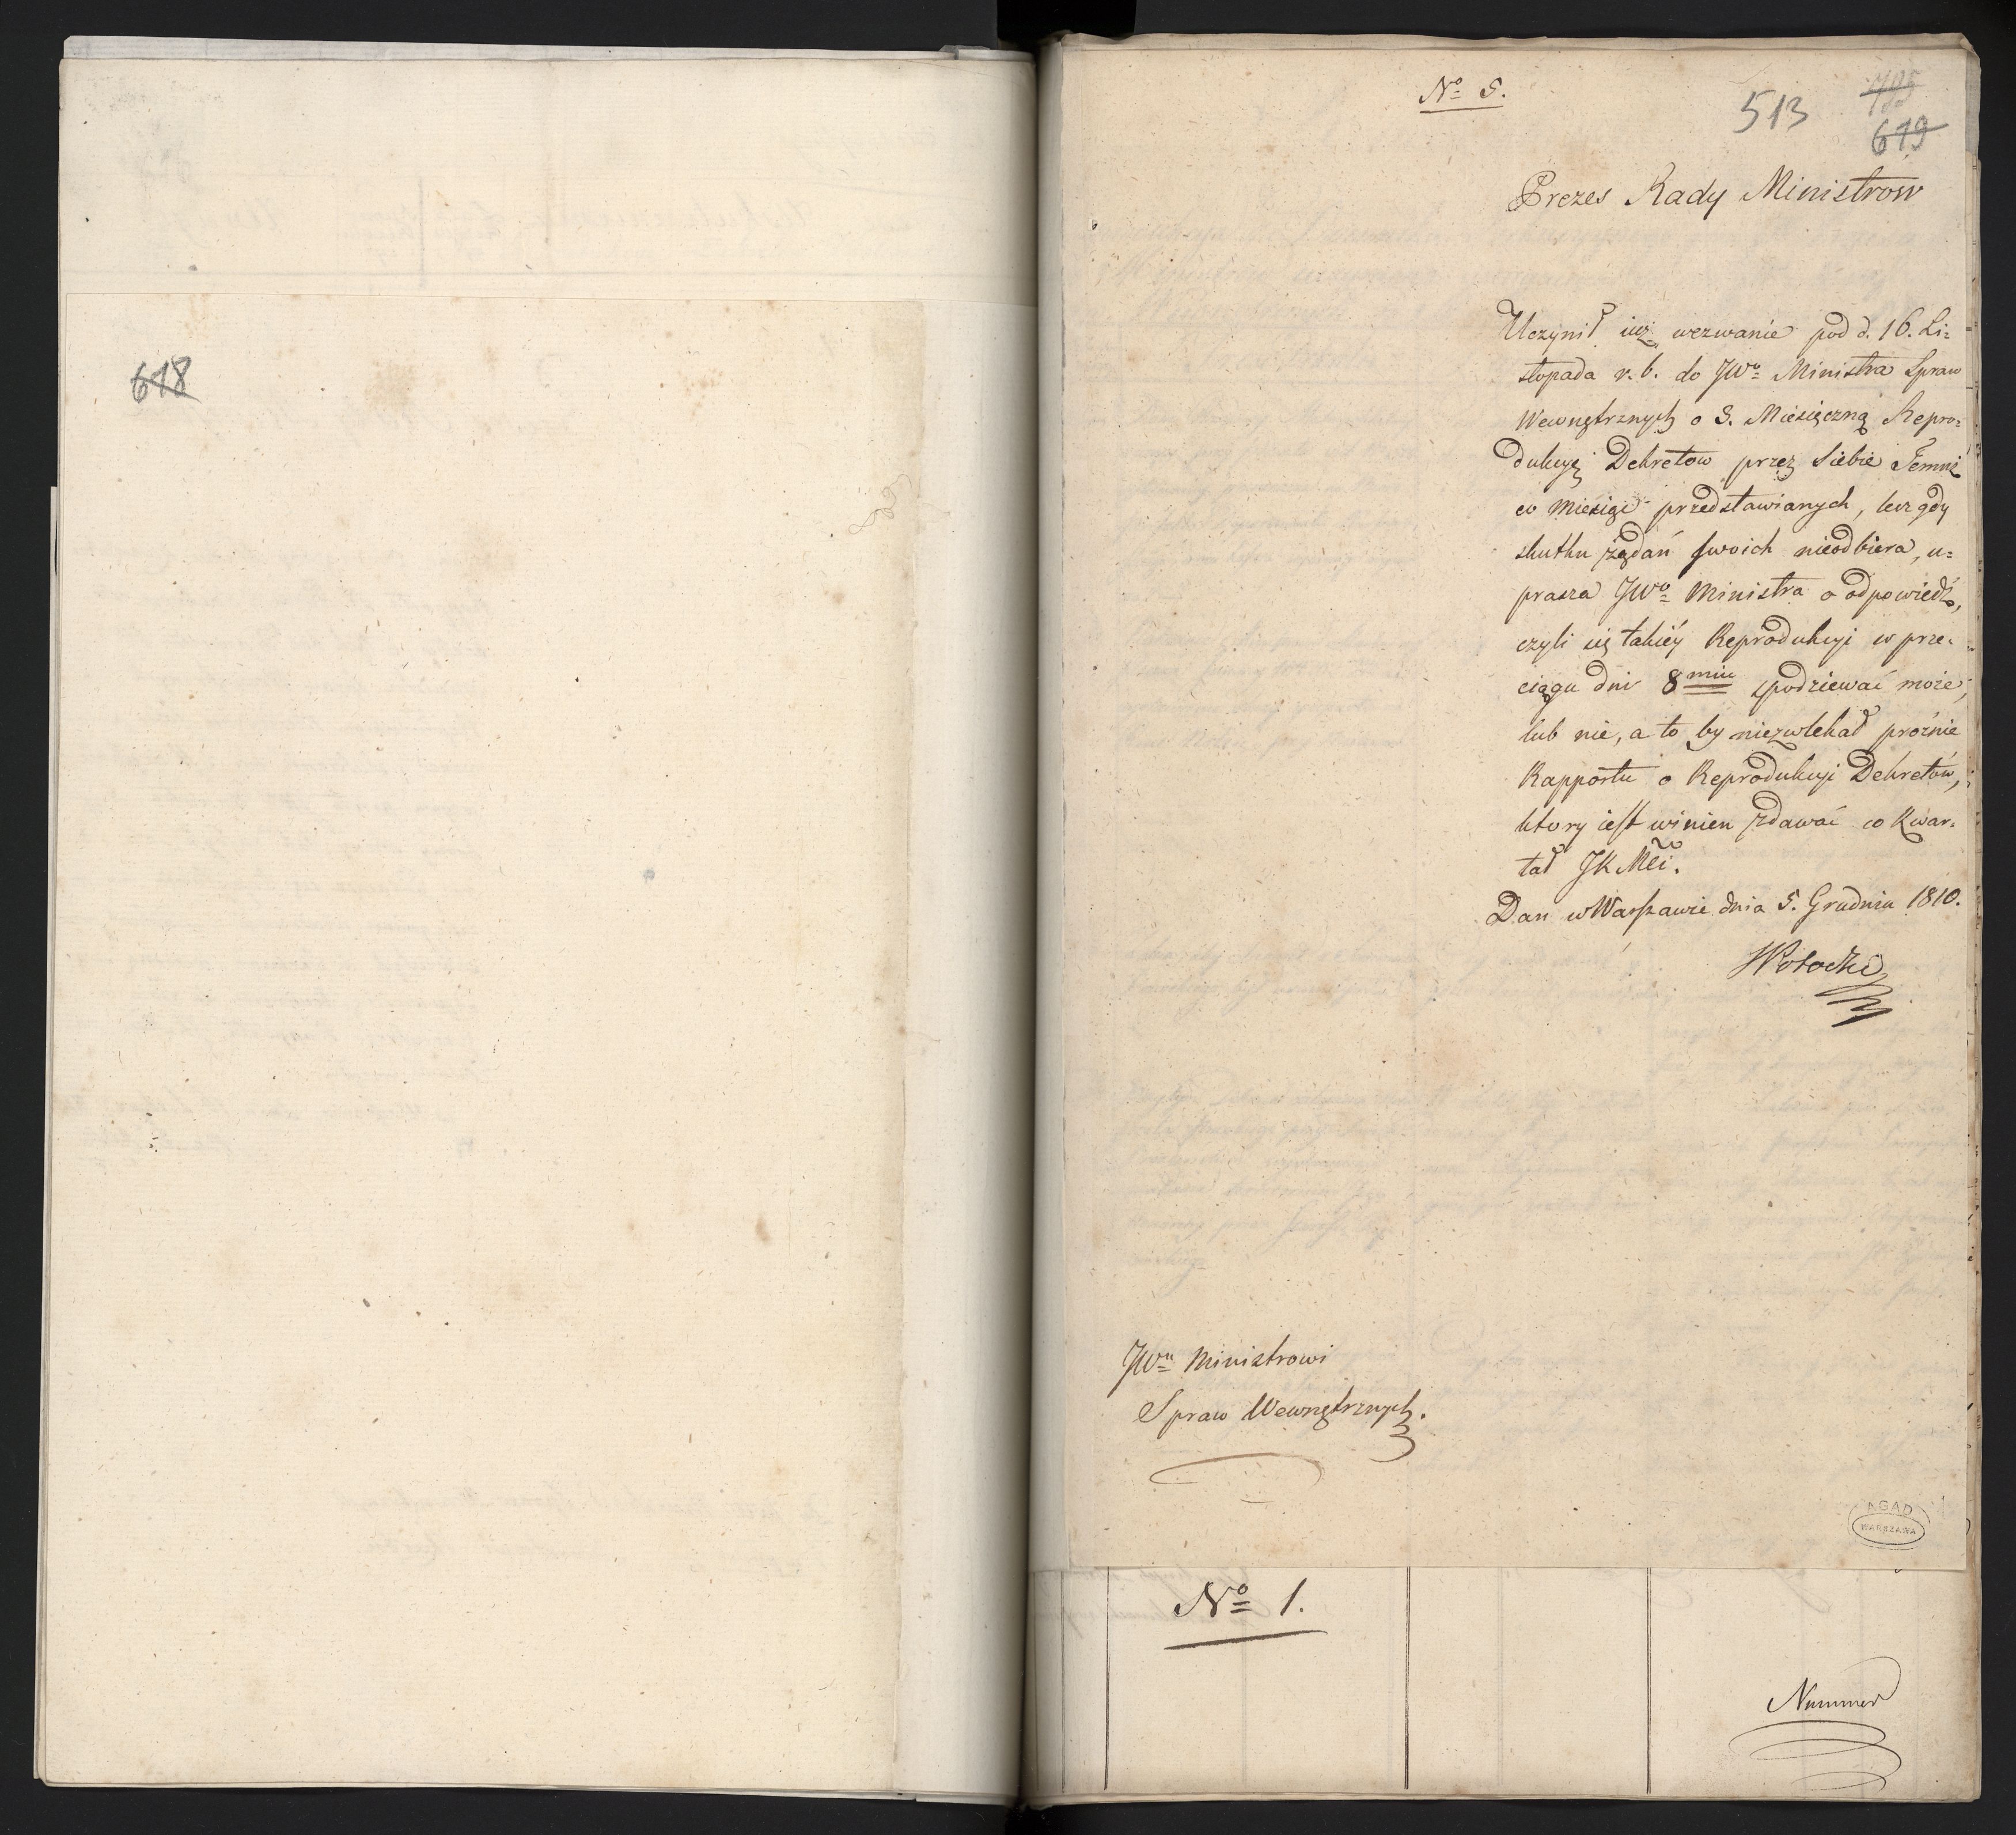 618
No 5.
513
619
Prezes Rady Ministrow
Uczynił iuż wezwanie pod d. 16. Li=
stopada r. b. do JWo Ministra Spraw
Wewnętrznych o 3. Miesięczną Repro=
dukcyę Dekretow przez siebie Temuż
co Miesiąc przedstawianych, lecz gdy
skutku żądań swoich nieodbiera, u=
prasza JWo Ministra o odpowiedź,
czyli się takiéy Reprodukcyi w prze-
ciągu dni 8miu spodziewać może,
lub nie, a to by niezwlekał proźnie
Rapportu o Reprodukcyi Dekretów,
ktory iest winien zdawać co Kwar-
tał JK Mci.
Dan w Warszawie dnia 5. Grudnia 1810.
Potocki
JWu Ministrowi
Spraw Wewnętrznych.
AGAD
WARSZAWA
No 1.
Nummer